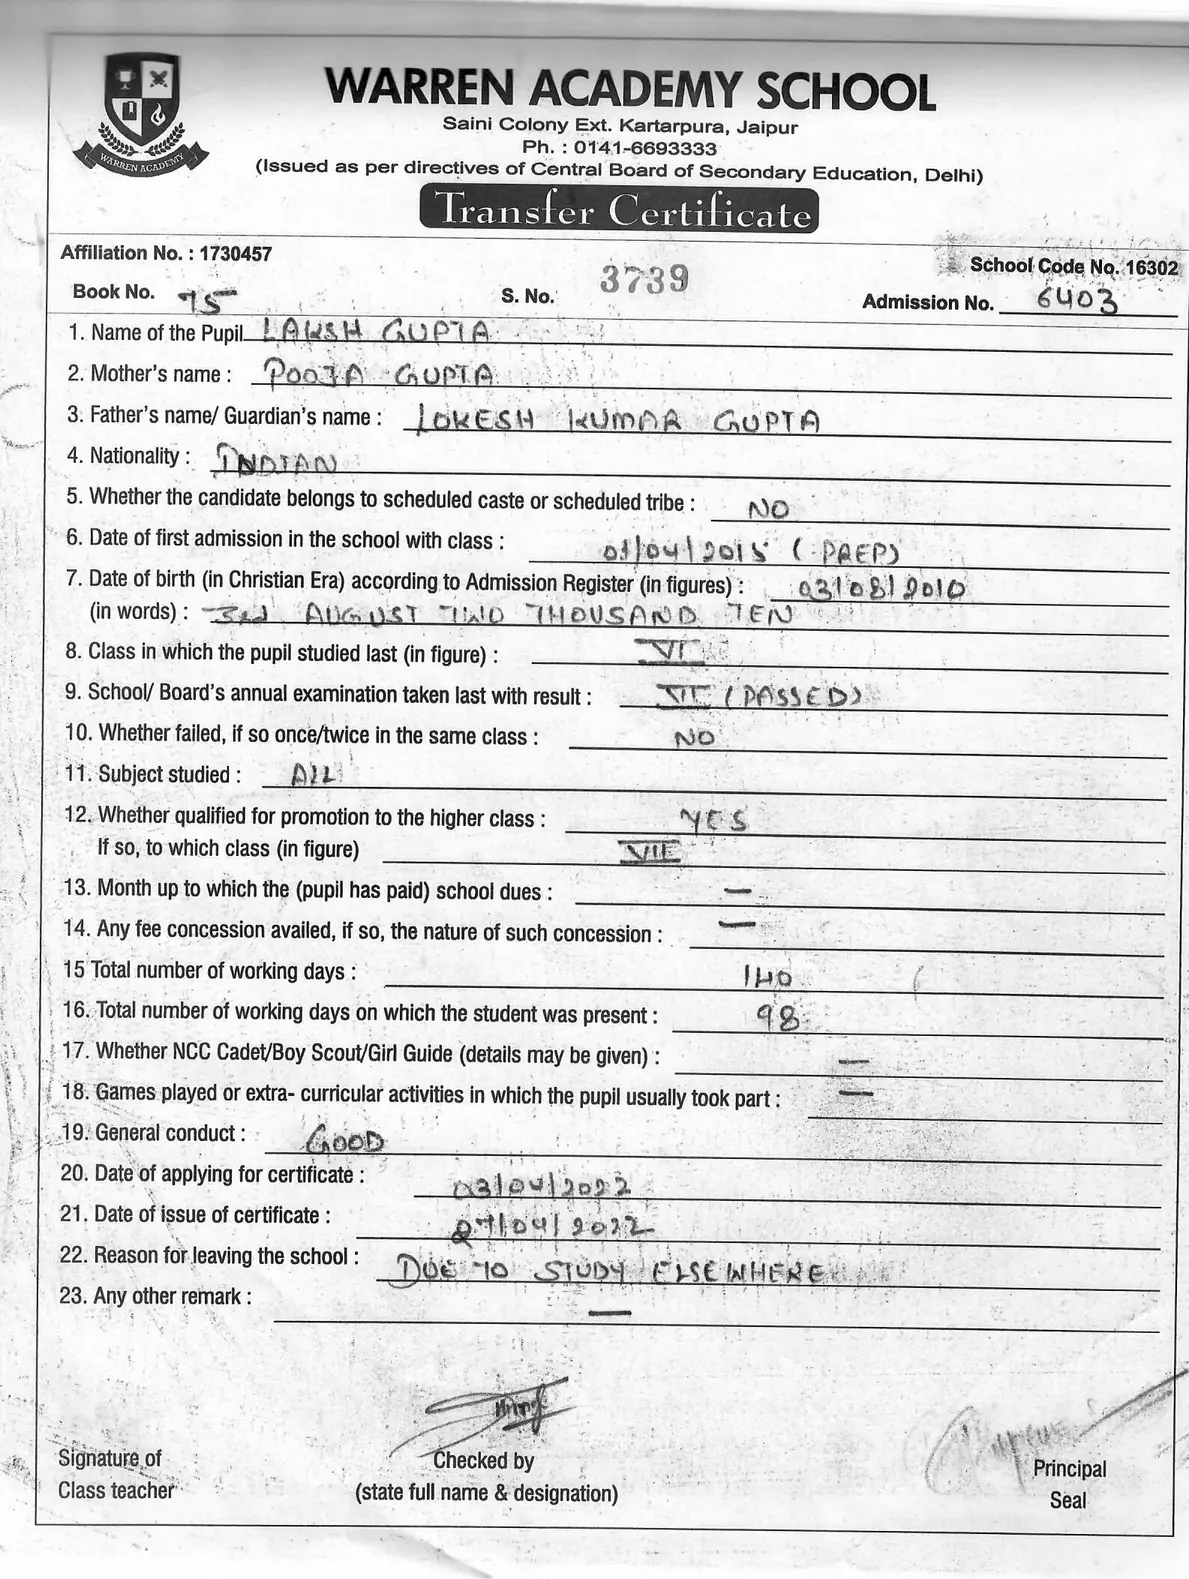 WARREN ACADEMY SCHOOL
Saini Colony Ext. Kartarpura, Jaipur
Ph. : 0141-6693333
(Issued as per directives of Central Board of Secondary Education, Delhi)
WARREN ACADEMY
Transfer Certificate
Affiliation No. : 1730457 School Code No. 16302
Book No. 75 S. No. 3739 Admission No. 6403
1. Name of the Pupil LAKSH GUPTA
2. Mother's name : POOJA GUPTA
3. Father's name/ Guardian's name : LOKESH KUMAR GUPTA
4. Nationality : INDIAN
5. Whether the candidate belongs to scheduled caste or scheduled tribe : NO
6. Date of first admission in the school with class : 01/04/2015 (PREP)
7. Date of birth (in Christian Era) according to Admission Register (in figures) : 03/08/2010
(in words) : 3rd AUGUST TWO THOUSAND TEN
8. Class in which the pupil studied last (in figure) : VI
9. School/ Board's annual examination taken last with result : VI (PASSED)
10. Whether failed, if so once/twice in the same class : NO
11. Subject studied : ALL
12. Whether qualified for promotion to the higher class : YES
If so, to which class (in figure) VII
13. Month up to which the (pupil has paid) school dues : —
14. Any fee concession availed, if so, the nature of such concession : —
15 Total number of working days : 140
16. Total number of working days on which the student was present : 98
17. Whether NCC Cadet/Boy Scout/Girl Guide (details may be given) : —
18. Games played or extra- curricular activities in which the pupil usually took part : —
19. General conduct : GOOD
20. Date of applying for certificate : 03/04/2022
21. Date of issue of certificate : 27/04/2022
22. Reason for leaving the school : DUE TO STUDY ELSEWHERE
23. Any other remark : —
Signature of Checked by Principal
Class teacher (state full name & designation) Seal